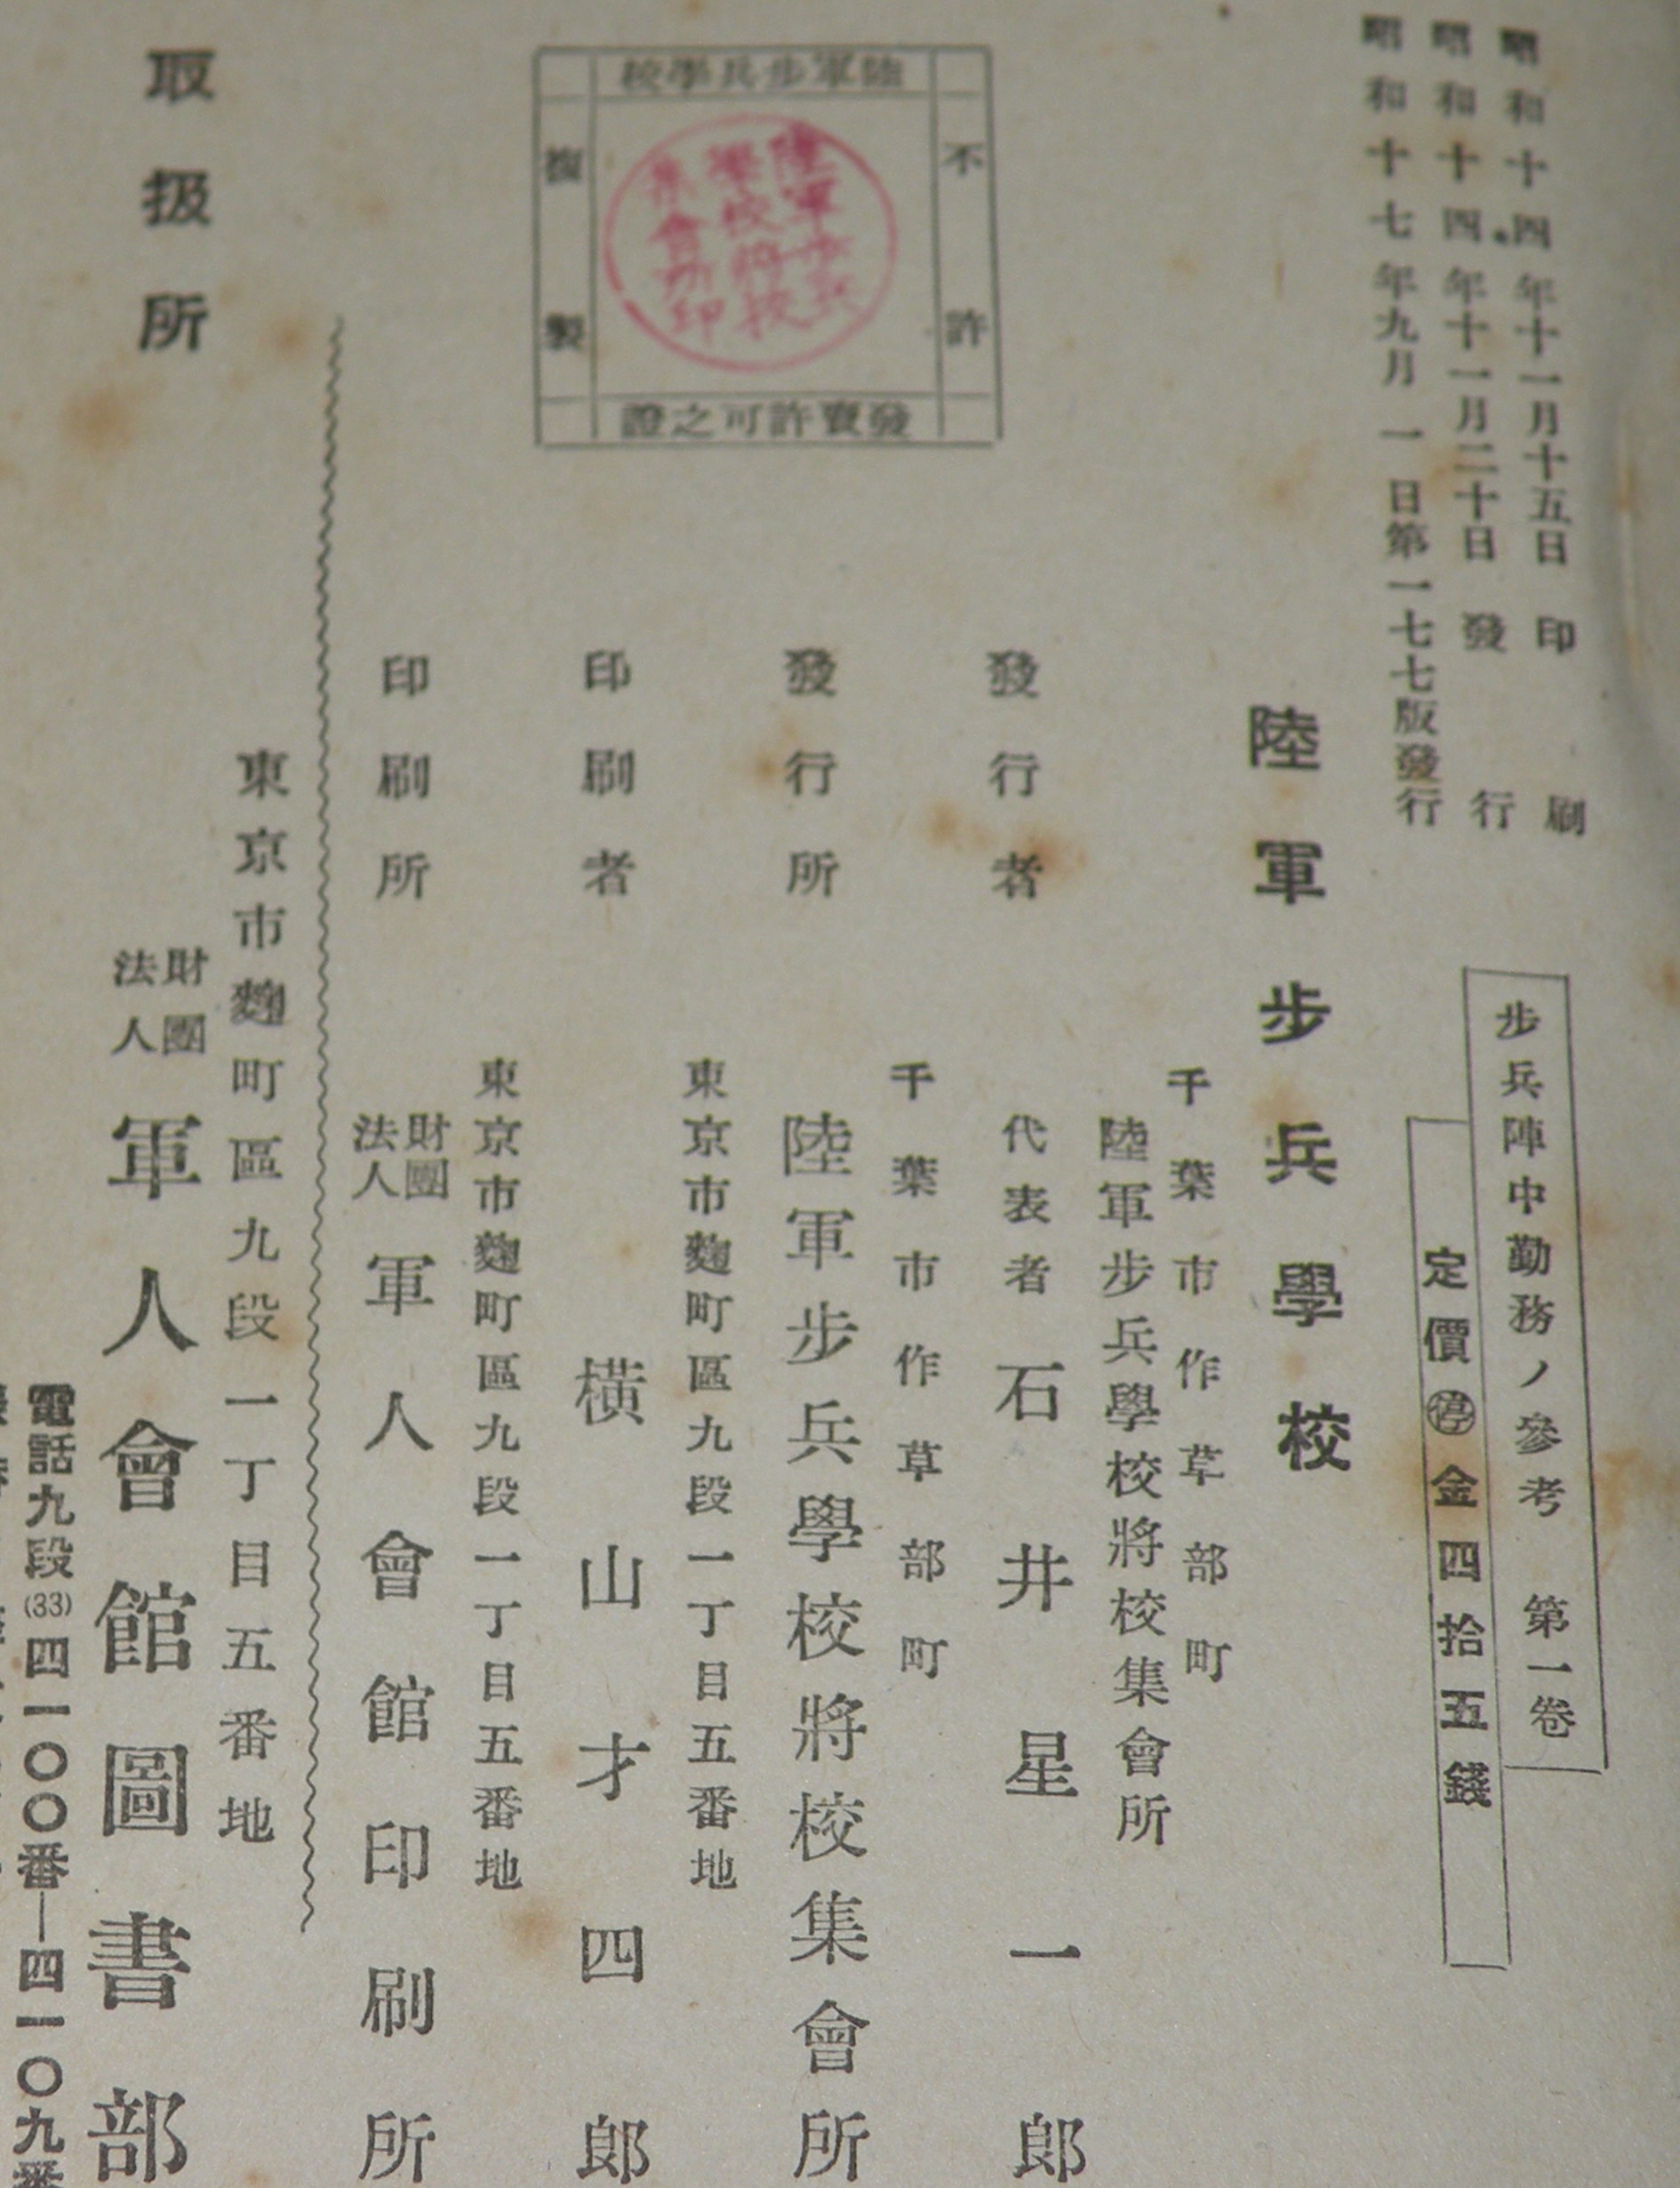 昭和十四年十一月十五日 印刷
昭和十四年十一月二十日 發行
昭和十七年九月一日第一七七版發行
步兵陣中勤務ノ參考 第一卷
定價㊡金四拾五錢
陸軍步兵學校
千葉市作草部町
陸軍步兵學校將校集會所
發行者 代表者 石井星一郎
千葉市作草部町
發行所 陸軍步兵學校將校集會所
東京市麴町區九段一丁目五番地
印刷者 橫山才四郎
東京市麴町區九段一丁目五番地
印刷所 財團法人 軍人會館印刷所
陸軍步兵學校
不許
複製
發賣許可之證
陸軍步兵
學校將校
集會所印
東京市麴町區九段一丁目五番地
取扱所 財團法人 軍人會館圖書部
電話九段(33)四一〇〇番—四一〇九番